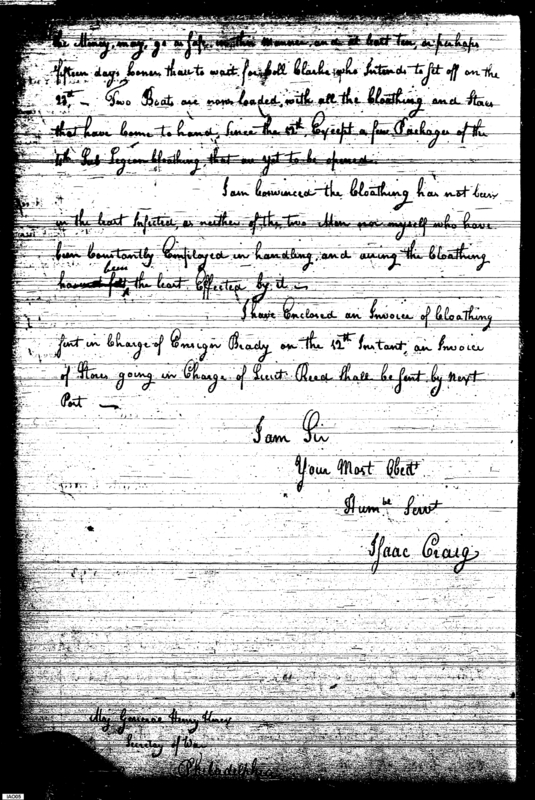 the Money, may, go as safe, in this manner, and at least ten, or perhaps
fifteen days sooner than to wait for Coll Clarke who Intends to set off on the
23d. — Two Boats are now loaded, with all the Cloathing and Stores
that have come to hand, since the 12th. Except a few Packages of the
4th Sub Legion Cloathing that are yet to be opened.
I am Convinced the Cloathing has not been
in the least Infected, as neither of the two Men nor myself who have
been Constantly Employed in handling, and airing the Cloathing
been
has the least Effected by it —
I have Enclosed an Invoice of Cloathing
sent in Charge of Ensign Brady on the 12th Instant, an Invoice
of Stores going in Charge of Lieut Reed shall be sent by next
Post —
I am Sir
Your Most Obedt
Humbe Servt
Isaac Craig
Maj General Henry Knox
Secretary of War
Philadelphia
IAC065